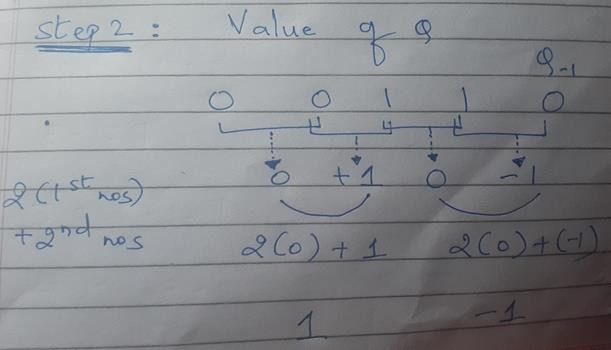 Step 2 : Value of Q
Q-1
0 0 1 1 0
0 +1 0 -1
2(1st nos)
+ 2nd nos
2(0) + 1 2(0)+(-1)
1 -1